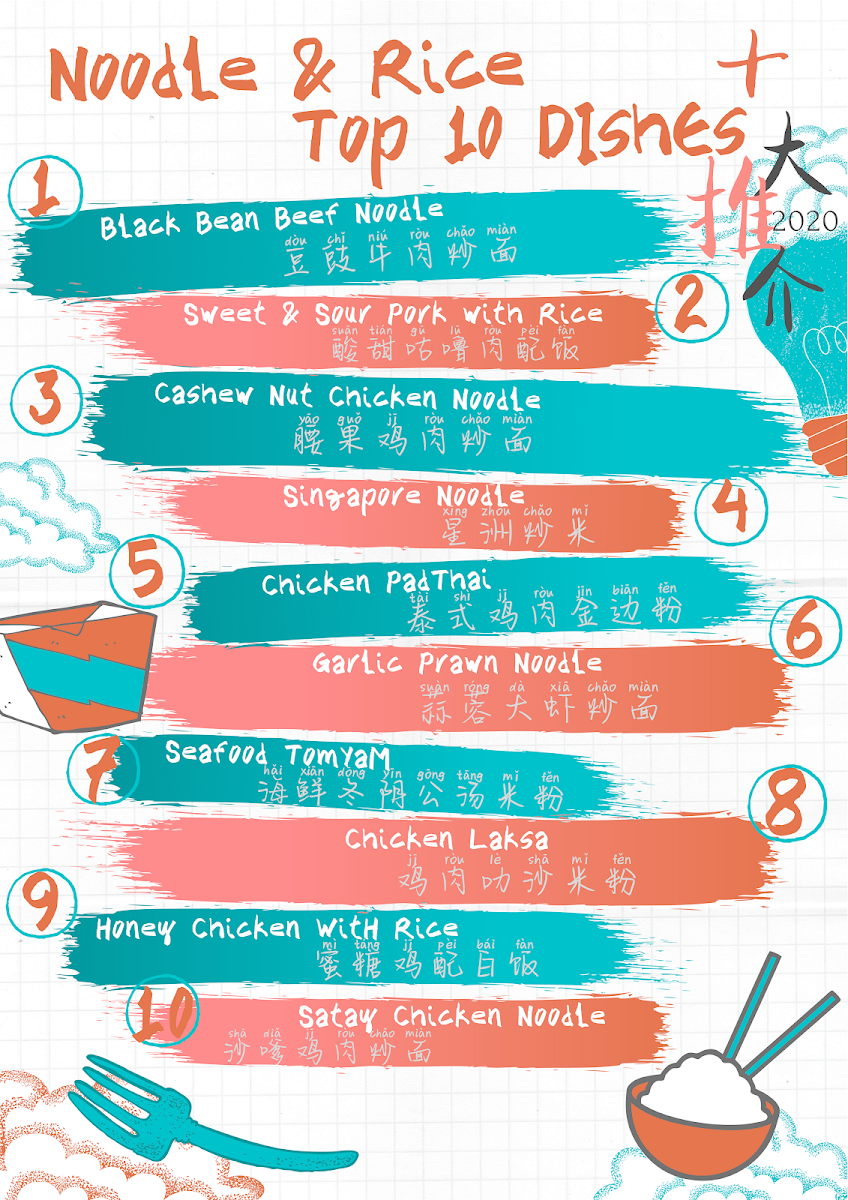 Noodle & Rice
Top 10 Dishes
十
大
推
2020
介
1
Black Bean Beef Noodle
dòu chǐ niú ròu chǎo miàn
豆豉牛肉炒面
2
Sweet & Sour Pork with Rice
suān tián gū lū ròu pèi fàn
酸甜咕噜肉配饭
3
Cashew Nut Chicken Noodle
yāo guǒ jī ròu chǎo miàn
腰果鸡肉炒面
4
Singapore Noodle
xīng zhōu chǎo mǐ
星洲炒米
5
Chicken PadThai
tài shì jī ròu jīn biān fěn
泰式鸡肉金边粉
6
Garlic Prawn Noodle
suàn róng dà xiā chǎo miàn
蒜蓉大虾炒面
7
Seafood TomYaM
hǎi xiān dōng yīn gōng tāng mǐ fěn
海鲜冬阴公汤米粉
8
Chicken Laksa
jī ròu lè shā mǐ fěn
鸡肉叻沙米粉
9
Honey Chicken WitH Rice
mì táng jī pèi bái fàn
蜜糖鸡配白饭
10
Satay Chicken Noodle
shā diā jī ròu chǎo miàn
沙嗲鸡肉炒面